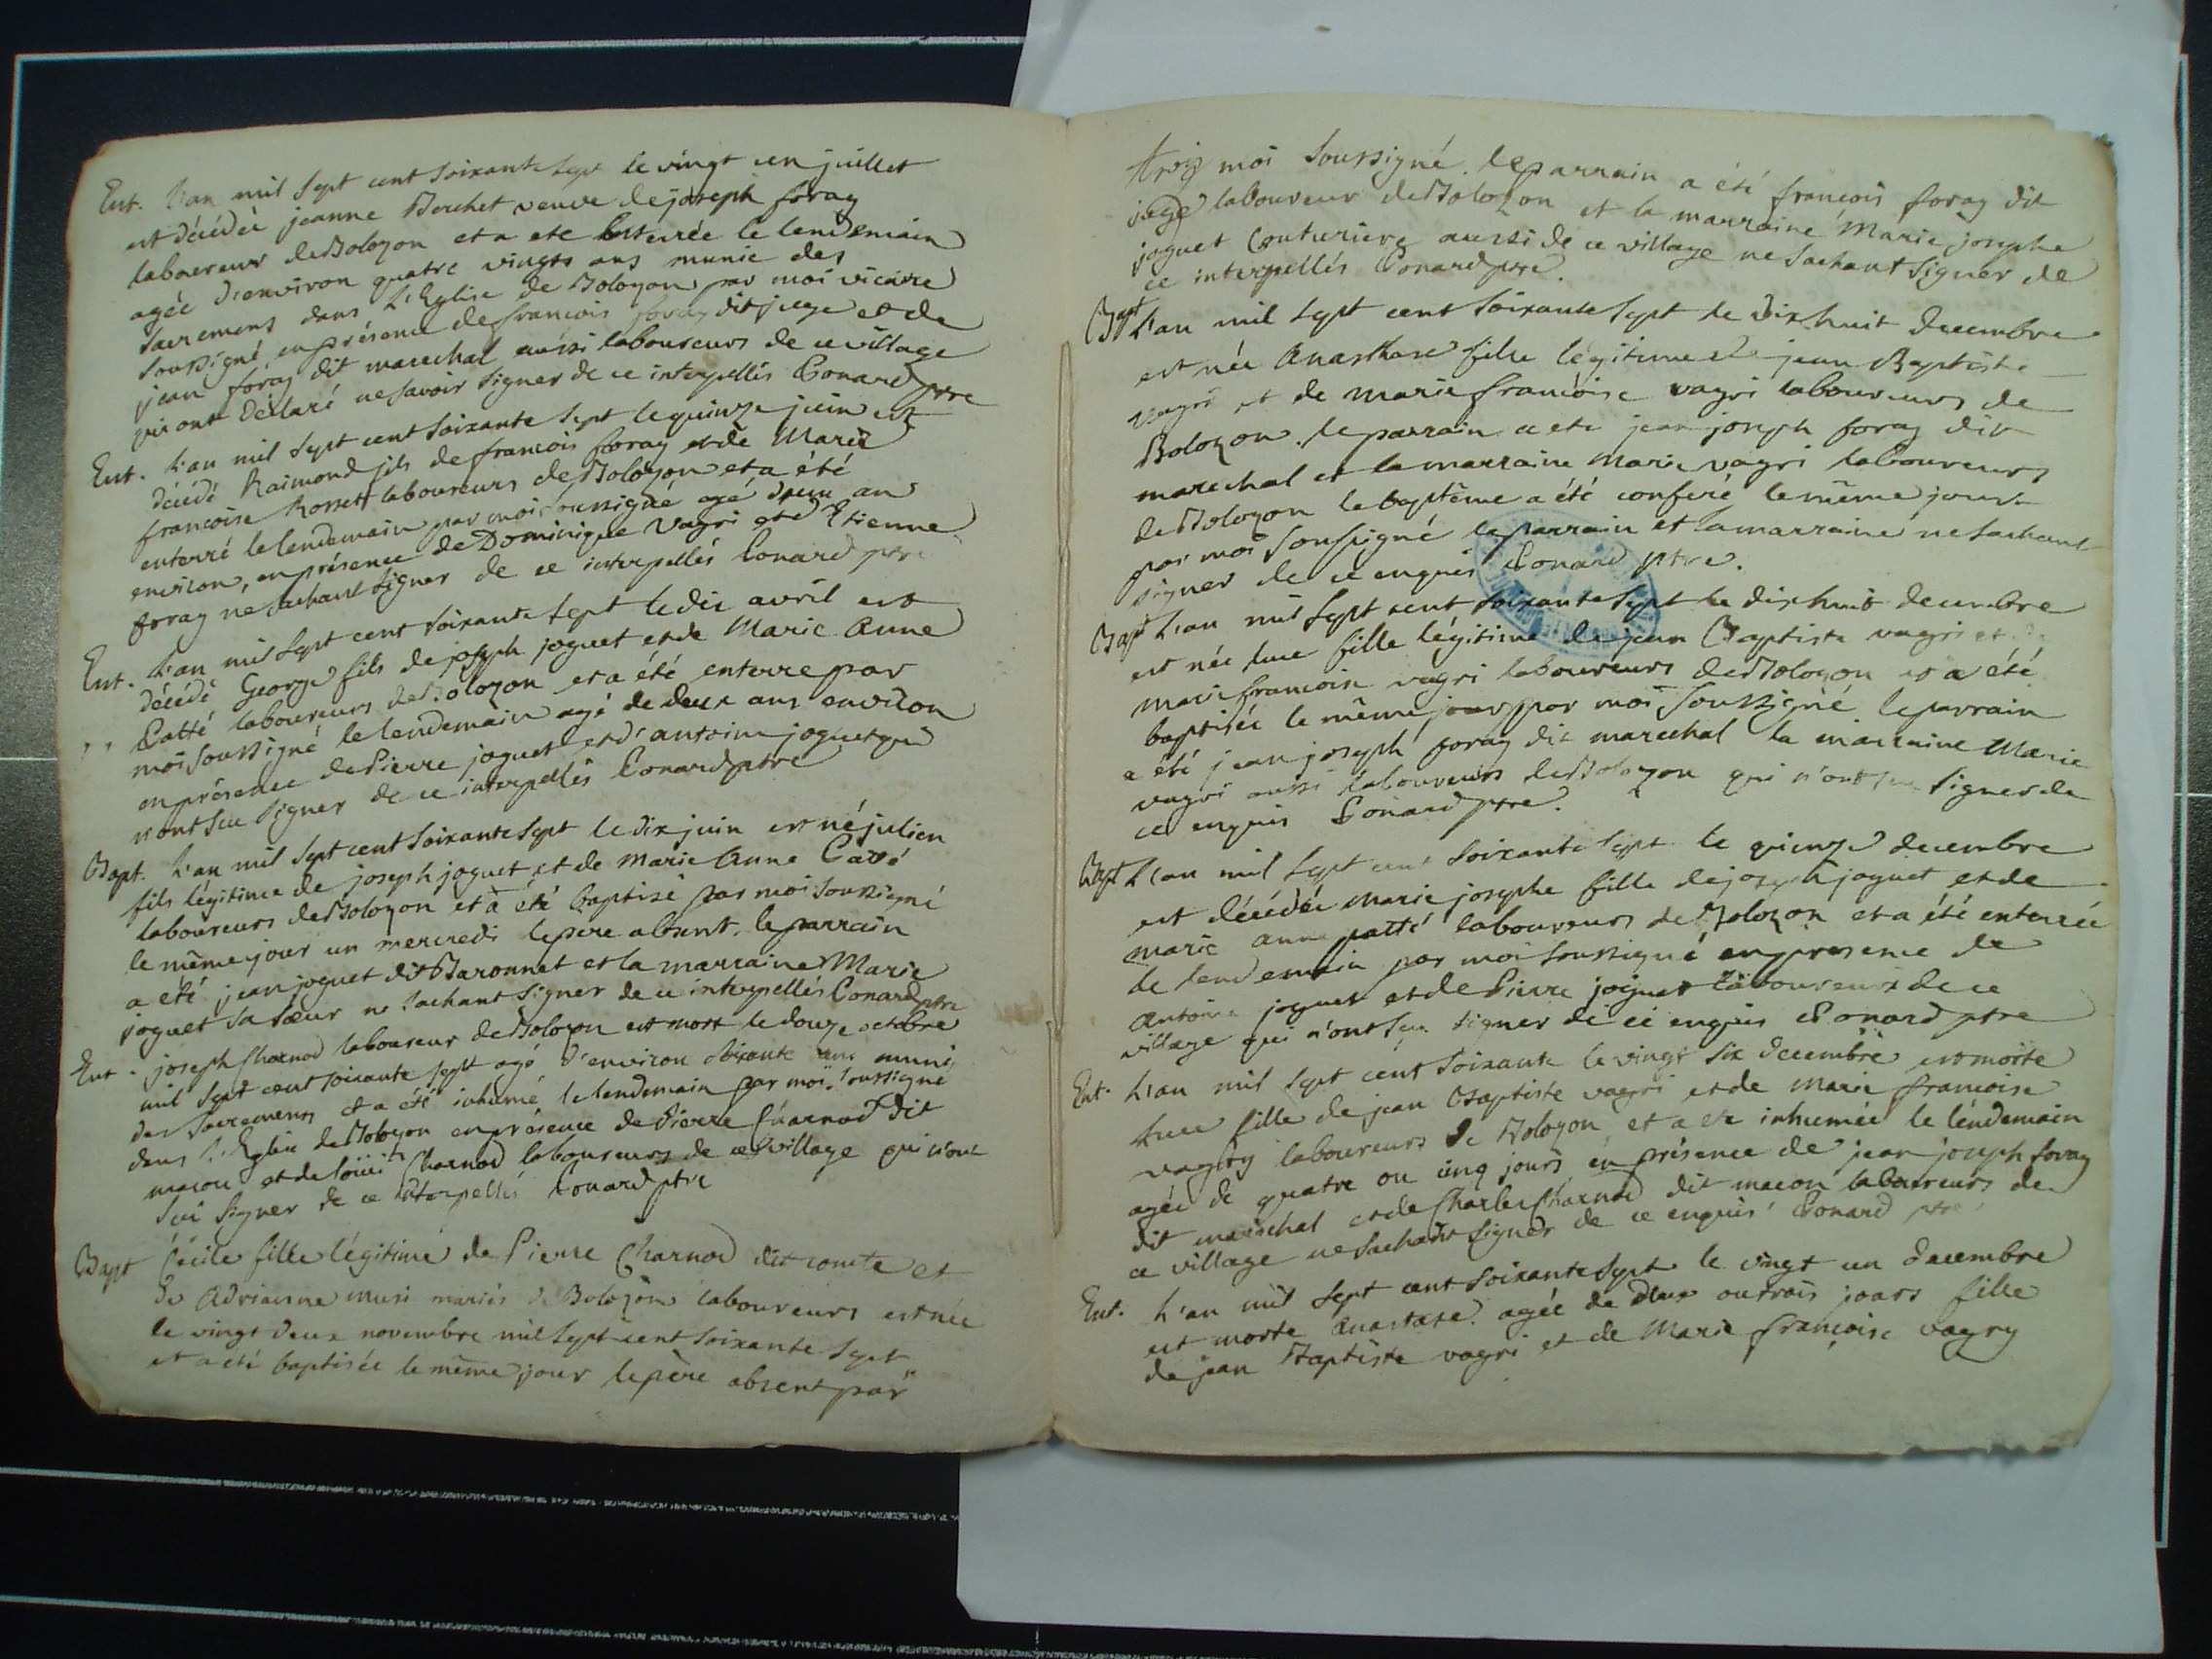 Ent. L'an mil sept cent soixante sept le vingt un juillet
est décédée jeanne Berchet veuve de joseph foray
laboureur de Bolozon et a ete enterrée le lendemain
agée d'environ quatre vingts ans munie des
sacremens dans l'Eglise de Bolozon par moi vicaire
soussigné en présence de francois foray dit juge et de
jean foray dit marechal aussi laboureurs de ce village
qui ont déclaré ne savoir signer de ce interpellés Conard ptre
Ent. L'an mil sept cent soixante sept le quinze juin est
décédé Raimond fils de francois foray et de Marie
francoise Rosset laboureurs de Bolozon et a été
enterré le lendemain par moi soussigné agé d'un an
environ, en présence de Dominique vagri et d'Etienne
foray ne sachant signer de ce interpellés Conard ptre
Ent. L'an mil sept cent soixante sept le dix avril est
décédé George fils de joseph joguet et de Marie Anne
Patté laboureurs de Bolozon et a été enterre par
moi soussigné le lendemain agé de deux ans environ
en présence de Pierre joguet et d'antoine joguet qui
n'ont seu signer de ce interpellés Conard ptre
Bapt. L'an mil sept cent soixante sept le dix juin est né julien
fils légitime de joseph joguet et de Marie Anne Patté
laboureurs de Bolozon et a été baptisé par moi soussigné
le même jour un mercredi le pere absent. le parrain
a été jean joguet dit Baronnat et la marraine Marie
joguet sa sœur ne sachant signer de ce interpellés Conard ptre
Ent. joseph Charnod laboureur de Bolozon est mort le douze octobre
mil sept cent soixante sept agé d'environ soixante ans muni
des sacremens et a été inhumé le lendemain par moi soussigné
dans l'Eglise de Bolozon en présence de Pierre Charnod dit
macon et de Louis Charnod laboureurs de ce village qui n'ont
seu signer de ce interpellés Conard ptre
Bapt Cécile fille légitime de Pierre Charnod dit comte et
de Adrianne musi mariés de Bolozon laboureurs est née
le vingt deux novembre mil sept cent soixante sept
et a été baptisée le même jour le père absent par
moi soussigné. le parrain a été françois foray dit
juge laboureur de Bolozon et la marraine Marie josephe
joguet Couturiere aussi de ce village ne sachant signer de
ce interpellés Conard ptre.
Bapt L'an mil sept cent soixante sept le dix huit decembre
est née Anasthase fille légitime de jean Baptiste
vagri et de marie francoise vagri laboureurs de
Bolozon. le parrain a ete jean joseph foray dit
marechal et la marraine Marie vagri laboureurs
de Bolozon le baptême a été conferé le même jour
par moi soussigné le parrain et la marraine ne sachant
signer de ce enquis Conard ptre.
Bapt L'an mil sept cent soixante sept le dix huit decembre
est née luce fille légitime de jean Baptiste vagri et de
marie francoise vagri laboureurs de Bolozon et a été
baptisée le même jour par moi soussigné le parrain
a été jean joseph foray dit marechal la marraine Marie
vagri aussi laboureurs de Bolozon qui n'ont seu signer de
ce enquis Conard ptre.
Bapt L'an mil sept cent soixante sept le quinze decembre
est décédée marie josephe fille de joseph joguet et de
marie anne patté laboureurs de Bolozon et a été enterrée
le lendemain par moi soussigné en presence de
antoine joguet et de Pierre joguet laboureurs de ce
village qui n'ont seu signer de ce enquis Conard ptre
Ent. L'an mil sept cent soixante le vingt six decembre est morte
luce fille de jean Baptiste vagri et de marie francoise
vagry laboureurs de Bolozon et a ete inhumée le lendemain
agée de quatre ou cinq jours en présence de jean joseph foray
dit marechal et de Charles Charnod dit macon laboureurs de
ce village ne sachant signer de ce enquis Conard ptre
Ent. L'an mil sept cent soixante sept le vingt un decembre
est morte Anastase agée de deux ou trois jours fille
de jean Baptiste vagri et de Marie françoise vagry